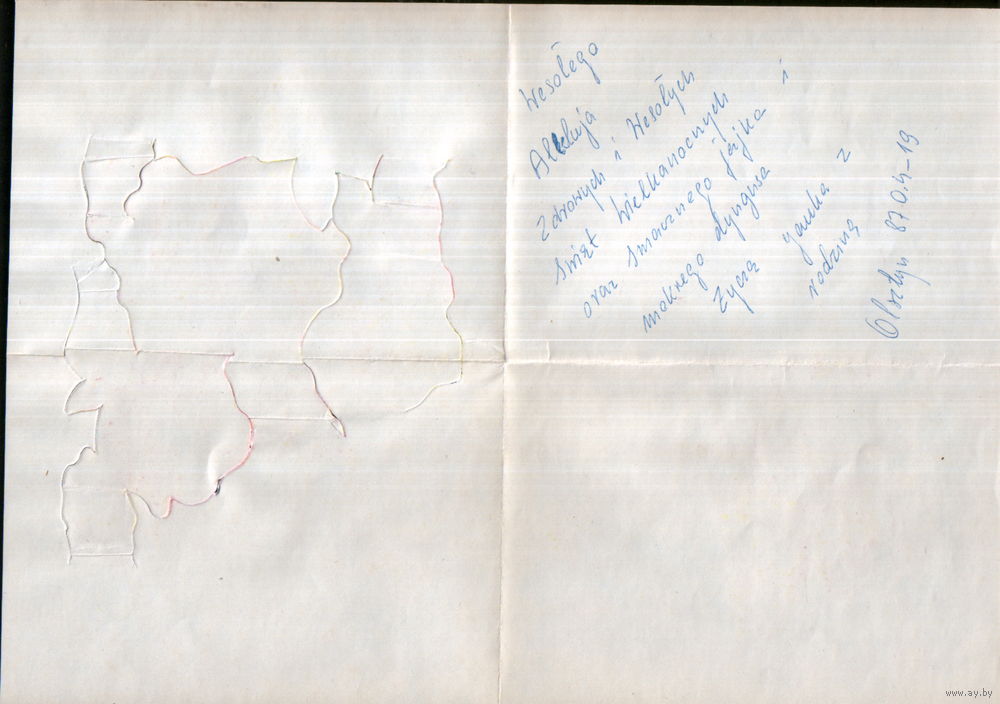 Wesołego
Alleluja
Zdrowych i Wesołych
Świąt Wielkanocnych
oraz smacznego jajka i
mokrego dyngusa
Życzą Janka z
rodziną
Olsztyn 87 04-19
www.ay.by